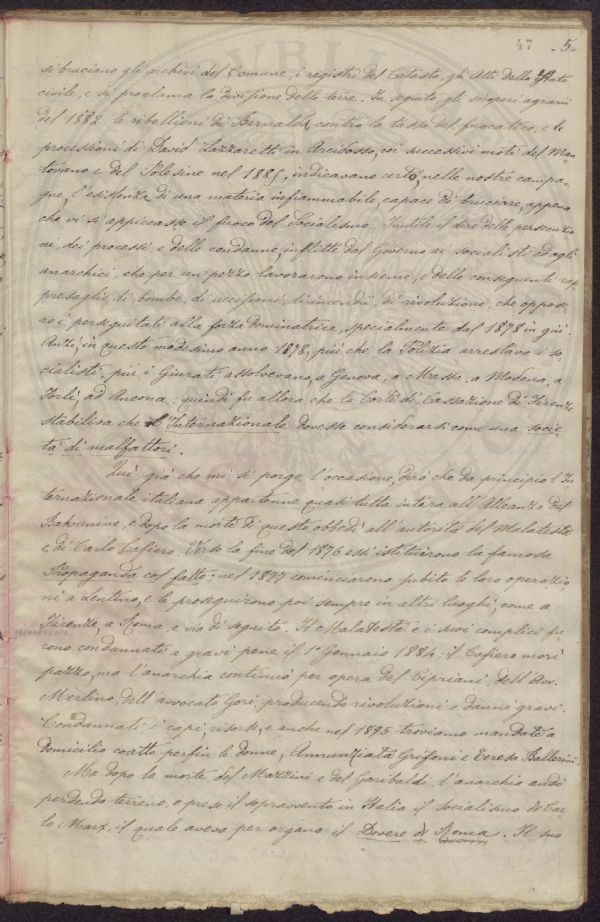 47 -5-
si bruciano gli archivi del Comune, i registri del Catasto, gli Atti dello Stato
civile, e si proclama la divisione delle terre. In seguito, gli scioperi agrari
del 1882, le ribellioni di contro la tassa del fuocatico, e le
processioni di David Lazzaretti in Arcidosso, coi successivi moti del Man-
tovano e del Polesine nel 1885, indicavano certo, nelle nostre campa-
gne, l'esistenza di una materia infiammabile, capace di bruciare, appena
che vi si appiccasse il fuoco del Socialismo. Inutile il dire delle persecuzio-
ni, dei processi e delle condanne, inflitte dal Governo ai socialisti ed agli
anarchici, che per un pezzo lavorarono insieme, e delle conseguenti rap-
presaglie di bombe, di uccisioni, di incendii, di rivoluzioni, che oppose-
ro i perseguitati alla forza dominatrice, specialmente dal 1878 in giù.
Anzi, in questo medesimo anno 1878, più che la Polizia arrestava i so-
cialisti, più i Giurati assolvevano, a Genova, a Massa, a Modena, a
Forlì, ad Ancona: quindi fu allora che la Corte di Cassazione di Firenze
stabiliva che l'Internazionale dovesse considerarsi come una socie-
tà di malfattori.
Qui, già che mi si porge l'occasione, dirò che da principio l'In-
ternazionale italiana appartenne quasi tutta intera all'Alleanza del
Bakounine, e dopo la morte di questo obbedì all'autorità del Malatesta
e di Carlo Cafiero. Verso la fine del 1876 essi istituirono la famosa
Propaganda col fatto; nel 1877 cominciarono subito le loro operazio-
ni a Lentino, e le proseguirono poi sempre in altri luoghi, come a
Firenze, a Roma, e via di seguito. Il Malatesta e i suoi complici fu-
rono condannati a gravi pene il 1° Gennaio 1884; il Cafiero morì
pazzo, ma l'anarchia continuò per opera del Cipriani, dell'Avv.
Merlino, dell'avvocato Gori, producendo rivoluzioni e danni gravi.
Condannati i capi, risorse, e anche nel 1895 troviamo mandate a
domicilio coatto perfin le donne, Annunziata Grifoni e Teresa Ballerini.
Ma dopo la morte del Mazzini e del Garibaldi, l'anarchia andò
perdendo terreno, e prese il sopravvento in Italia il socialismo di Car-
lo Marx, il quale aveva per organo il Dovere di Roma. Il suo